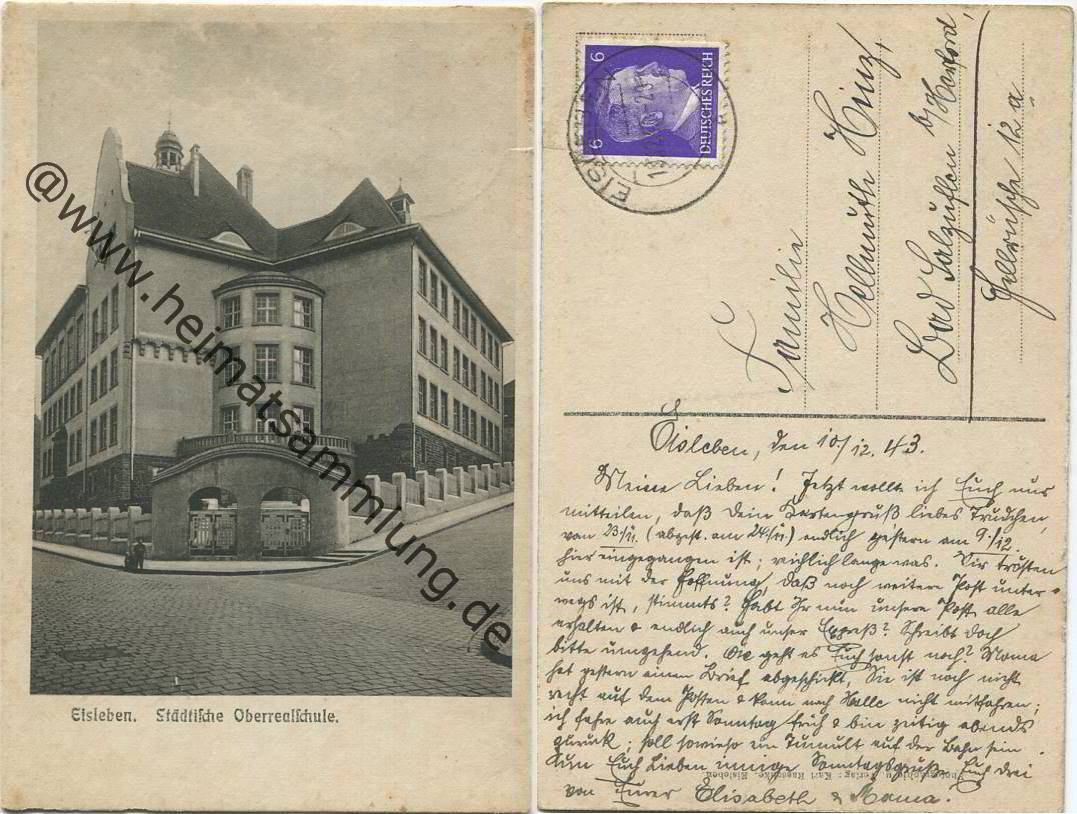 @www.heimatsammlung.de
Eisleben. Städtische Oberrealschule.
6 6
DEUTSCHES REICH
EISLEBEN
Familie
Hellmuth Hinz,
Bad Salzuflen b/Herford,
12 a
Eisleben, den 10/12. 43.
Meine Lieben! Jetzt wollte ich Euch nur
mitteilen, daß Dein Kartengruß liebes Trudchen,
von 23/11. (abgest. am 24/11.) endlich gestern am 9./12.
hier eingegangen ist; reichlich lange was. Wir trösten
uns mit der Hoffnung, daß noch weitere Post unter-
wegs ist, stimmts? Habt Ihr nun unsere Post alle
erhalten & endlich auch unser Expreß? Schreibt doch
bitte umgehend. Wie geht es Euch sonst noch? Mama
hat gestern einen Brief abgeschickt, Sie ist noch nicht
recht auf dem Posten & kann nach Halle nicht mitfahren;
ich fahre auch erst Sonntag früh & bin zeitig abends
zurück; soll sowieso ein Tumult auf der Bahn sein
Nun Euch Lieben innige Sonntagsgrüße Euch drei
von Eurer Elisabeth & Mama.
Photographie u. Verlag: Karl Eisleben.